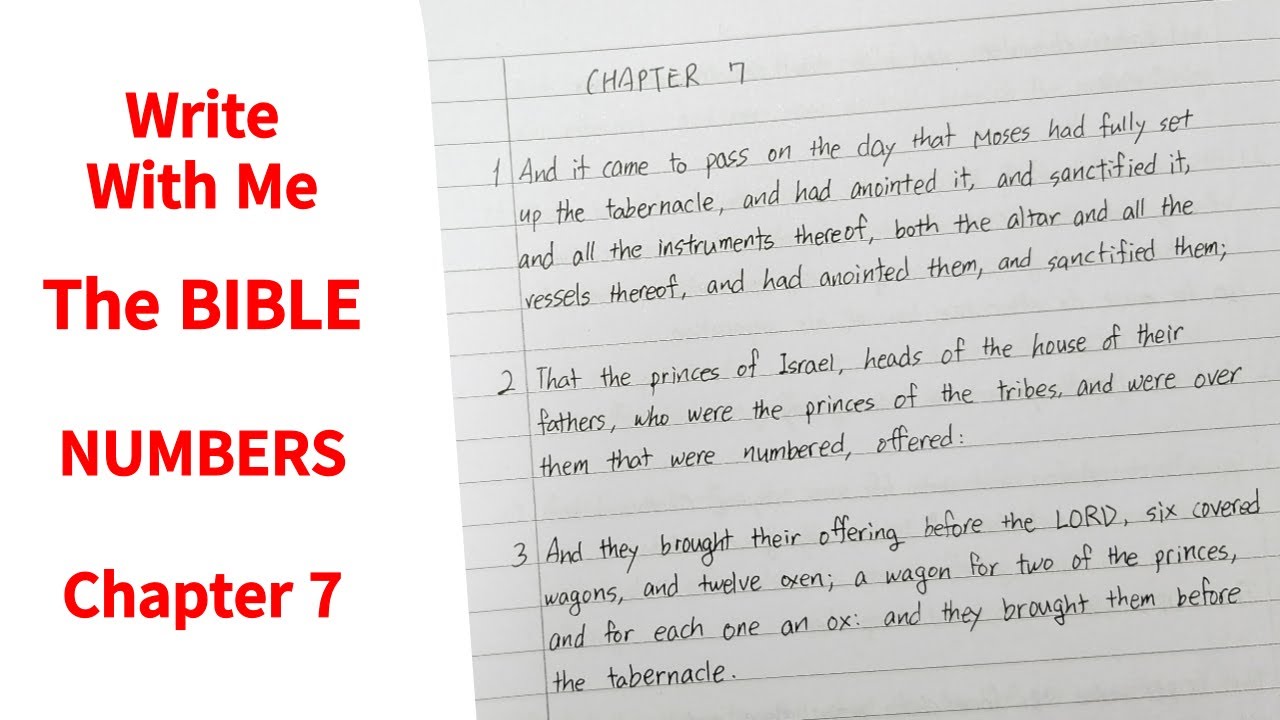 Write
With Me
The BIBLE
NUMBERS
Chapter 7
CHAPTER 7
1 And it came to pass on the day that Moses had fully set
up the tabernacle, and had anointed it, and sanctified it,
and all the instruments thereof, both the altar and all the
vessels thereof, and had anointed them, and sanctified them;
2 That the princes of Israel, heads of the house of their
fathers, who were the princes of the tribes, and were over
them that were numbered, offered:
3 And they brought their offering before the LORD, six covered
wagons, and twelve oxen; a wagon for two of the princes,
and for each one an ox: and they brought them before
the tabernacle.